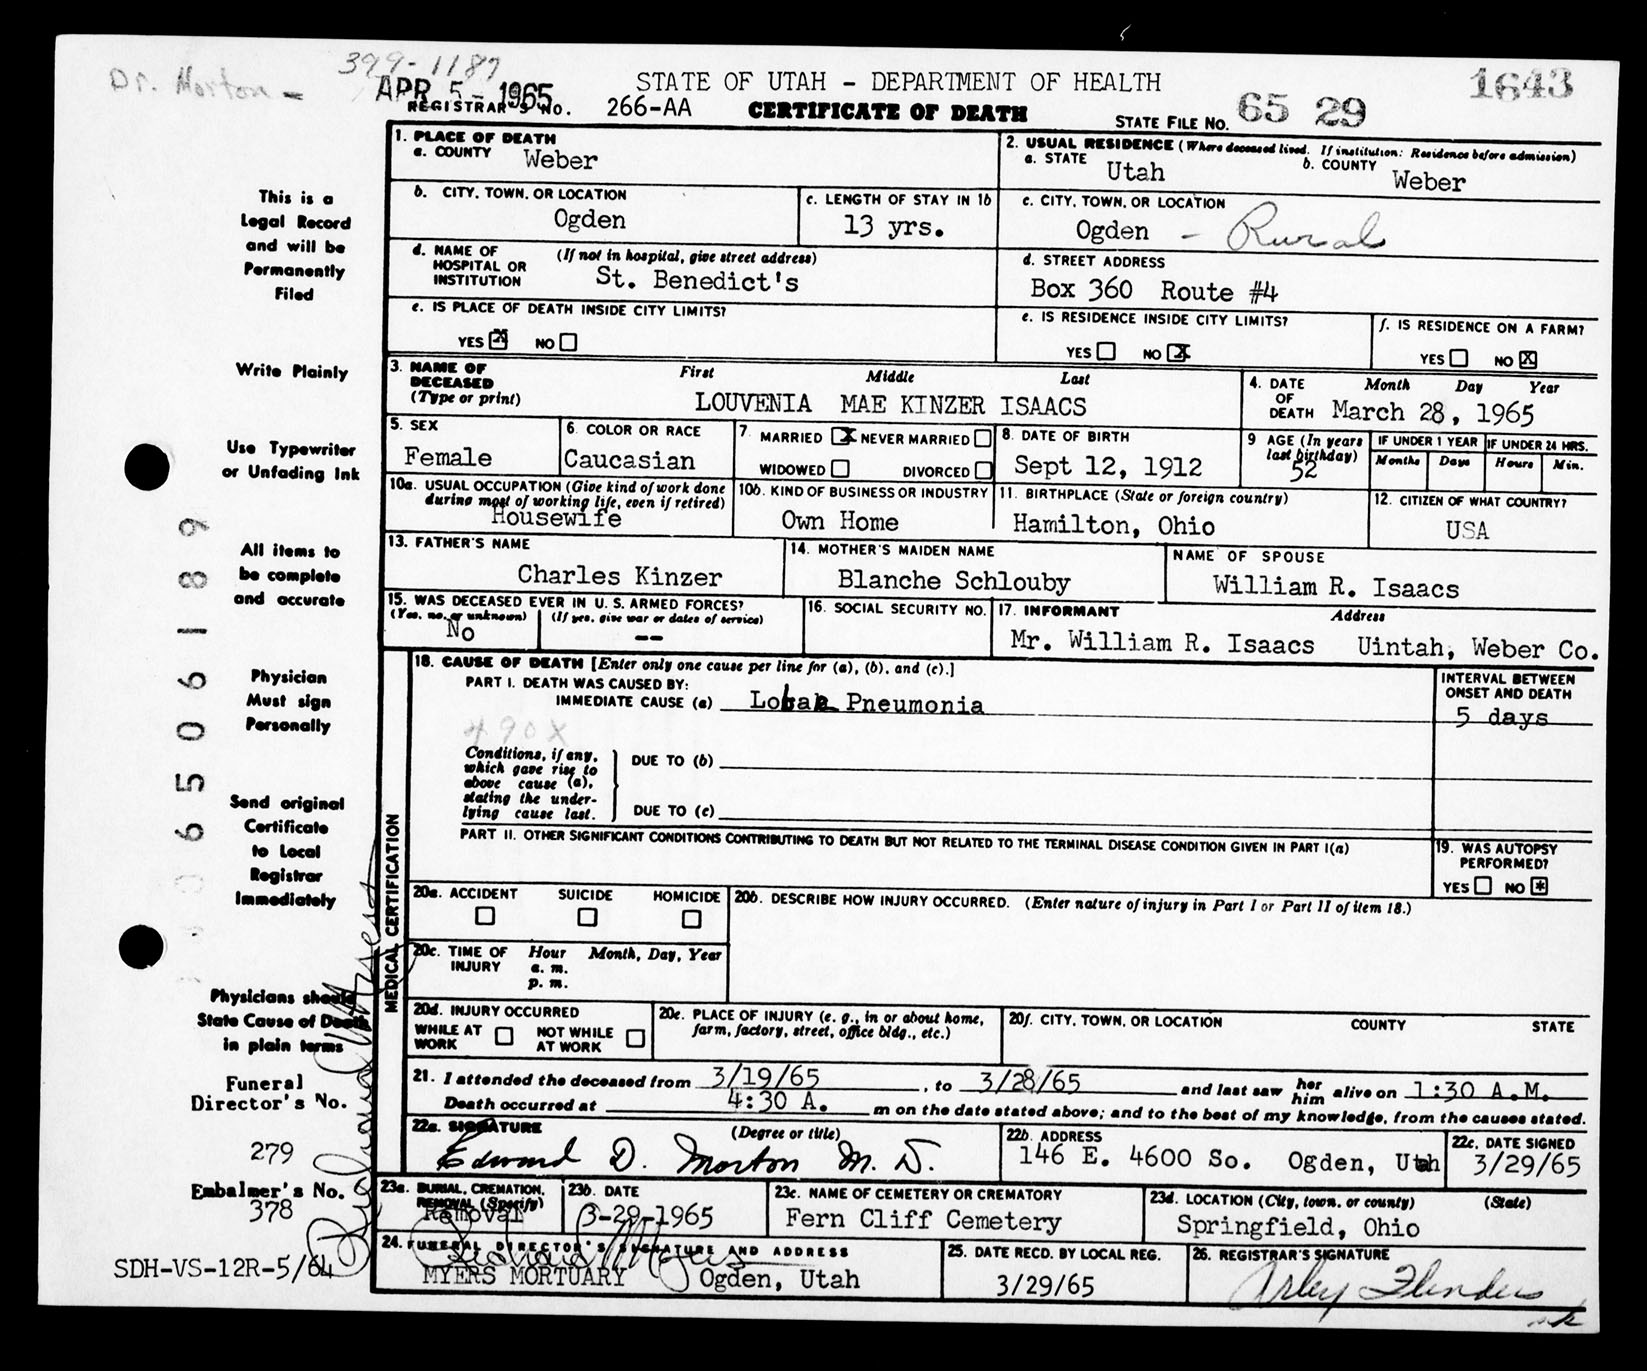 Dr. Morton -
399-1187
APR 5 - 1965
STATE OF UTAH - DEPARTMENT OF HEALTH
1643
REGISTRAR'S NO. 266-AA CERTIFICATE OF DEATH STATE FILE NO. 65 29
This is a
Legal Record
and will be
Permanently
Filed
Write Plainly
Use Typewriter
or Unfading Ink
All items to
be complete
and accurate
Physician
Must sign
Personally
Send original
Certificate
to Local
Registrar
Immediately
Physicians should
State Cause of Death
in plain terms
Funeral
Director's No.
279
Embalmer's No.
378
SDH-VS-12R-5/64
6506189
1. PLACE OF DEATH
a. COUNTY Weber
2. USUAL RESIDENCE (Where deceased lived. If institution: Residence before admission)
a. STATE Utah b. COUNTY Weber
b. CITY, TOWN, OR LOCATION
Ogden
c. LENGTH OF STAY IN 1b
13 yrs.
c. CITY, TOWN, OR LOCATION
Ogden - Rural
d. NAME OF HOSPITAL OR INSTITUTION (If not in hospital, give street address)
St. Benedict's
d. STREET ADDRESS
Box 360 Route #4
e. IS PLACE OF DEATH INSIDE CITY LIMITS?
YES X NO
e. IS RESIDENCE INSIDE CITY LIMITS?
YES NO X
f. IS RESIDENCE ON A FARM?
YES NO X
3. NAME OF DECEASED (Type or print) First Middle Last
LOUVENIA MAE KINZER ISAACS
4. DATE OF DEATH Month Day Year
March 28, 1965
5. SEX
Female
6. COLOR OR RACE
Caucasian
7. MARRIED X NEVER MARRIED
WIDOWED DIVORCED
8. DATE OF BIRTH
Sept 12, 1912
9 AGE (In years last birthday)
52
IF UNDER 1 YEAR
Months Days
IF UNDER 24 HRS.
Hours Min.
10a. USUAL OCCUPATION (Give kind of work done during most of working life, even if retired)
Housewife
10b. KIND OF BUSINESS OR INDUSTRY
Own Home
11. BIRTHPLACE (State or foreign country)
Hamilton, Ohio
12. CITIZEN OF WHAT COUNTRY?
USA
13. FATHER'S NAME
Charles Kinzer
14. MOTHER'S MAIDEN NAME
Blanche Schlouby
NAME OF SPOUSE
William R. Isaacs
15. WAS DECEASED EVER IN U. S. ARMED FORCES?
(Yes, no, or unknown) (If yes, give war or dates of service)
No --
16. SOCIAL SECURITY NO.
17. INFORMANT Address
Mr. William R. Isaacs Uintah, Weber Co.
MEDICAL CERTIFICATION
18. CAUSE OF DEATH [Enter only one cause per line for (a), (b), and (c).]
PART I. DEATH WAS CAUSED BY:
IMMEDIATE CAUSE (a) Lobar Pneumonia
INTERVAL BETWEEN
ONSET AND DEATH
5 days
490X
Conditions, if any,
which gave rise to
above cause (a),
stating the under-
lying cause last.
DUE TO (b)
DUE TO (c)
PART II. OTHER SIGNIFICANT CONDITIONS CONTRIBUTING TO DEATH BUT NOT RELATED TO THE TERMINAL DISEASE CONDITION GIVEN IN PART I(a)
19. WAS AUTOPSY
PERFORMED?
YES NO *
20a. ACCIDENT SUICIDE HOMICIDE
20b. DESCRIBE HOW INJURY OCCURRED. (Enter nature of injury in Part I or Part II of item 18.)
20c. TIME OF INJURY Hour Month, Day, Year
a. m.
p. m.
20d. INJURY OCCURRED
WHILE AT WORK NOT WHILE AT WORK
20e. PLACE OF INJURY (e. g., in or about home, farm, factory, street, office bldg., etc.)
20f. CITY, TOWN, OR LOCATION COUNTY STATE
21. I attended the deceased from 3/19/65, to 3/28/65 and last saw her him alive on 1:30 A.M.
Death occurred at 4:30 A. m on the date stated above; and to the best of my knowledge, from the causes stated.
22a. SIGNATURE (Degree or title)
Edward D. Morton M. D.
22b. ADDRESS
146 E. 4600 So. Ogden, Utah
22c. DATE SIGNED
3/29/65
23a. BURIAL, CREMATION, REMOVAL (Specify)
Removal
23b. DATE
3-29-1965
23c. NAME OF CEMETERY OR CREMATORY
Fern Cliff Cemetery
23d. LOCATION (City, town, or county) (State)
Springfield, Ohio
24. FUNERAL DIRECTOR'S SIGNATURE AND ADDRESS
Richard Myers
MYERS MORTUARY Ogden, Utah
25. DATE RECD. BY LOCAL REG.
3/29/65
26. REGISTRAR'S SIGNATURE
Arley Flinders